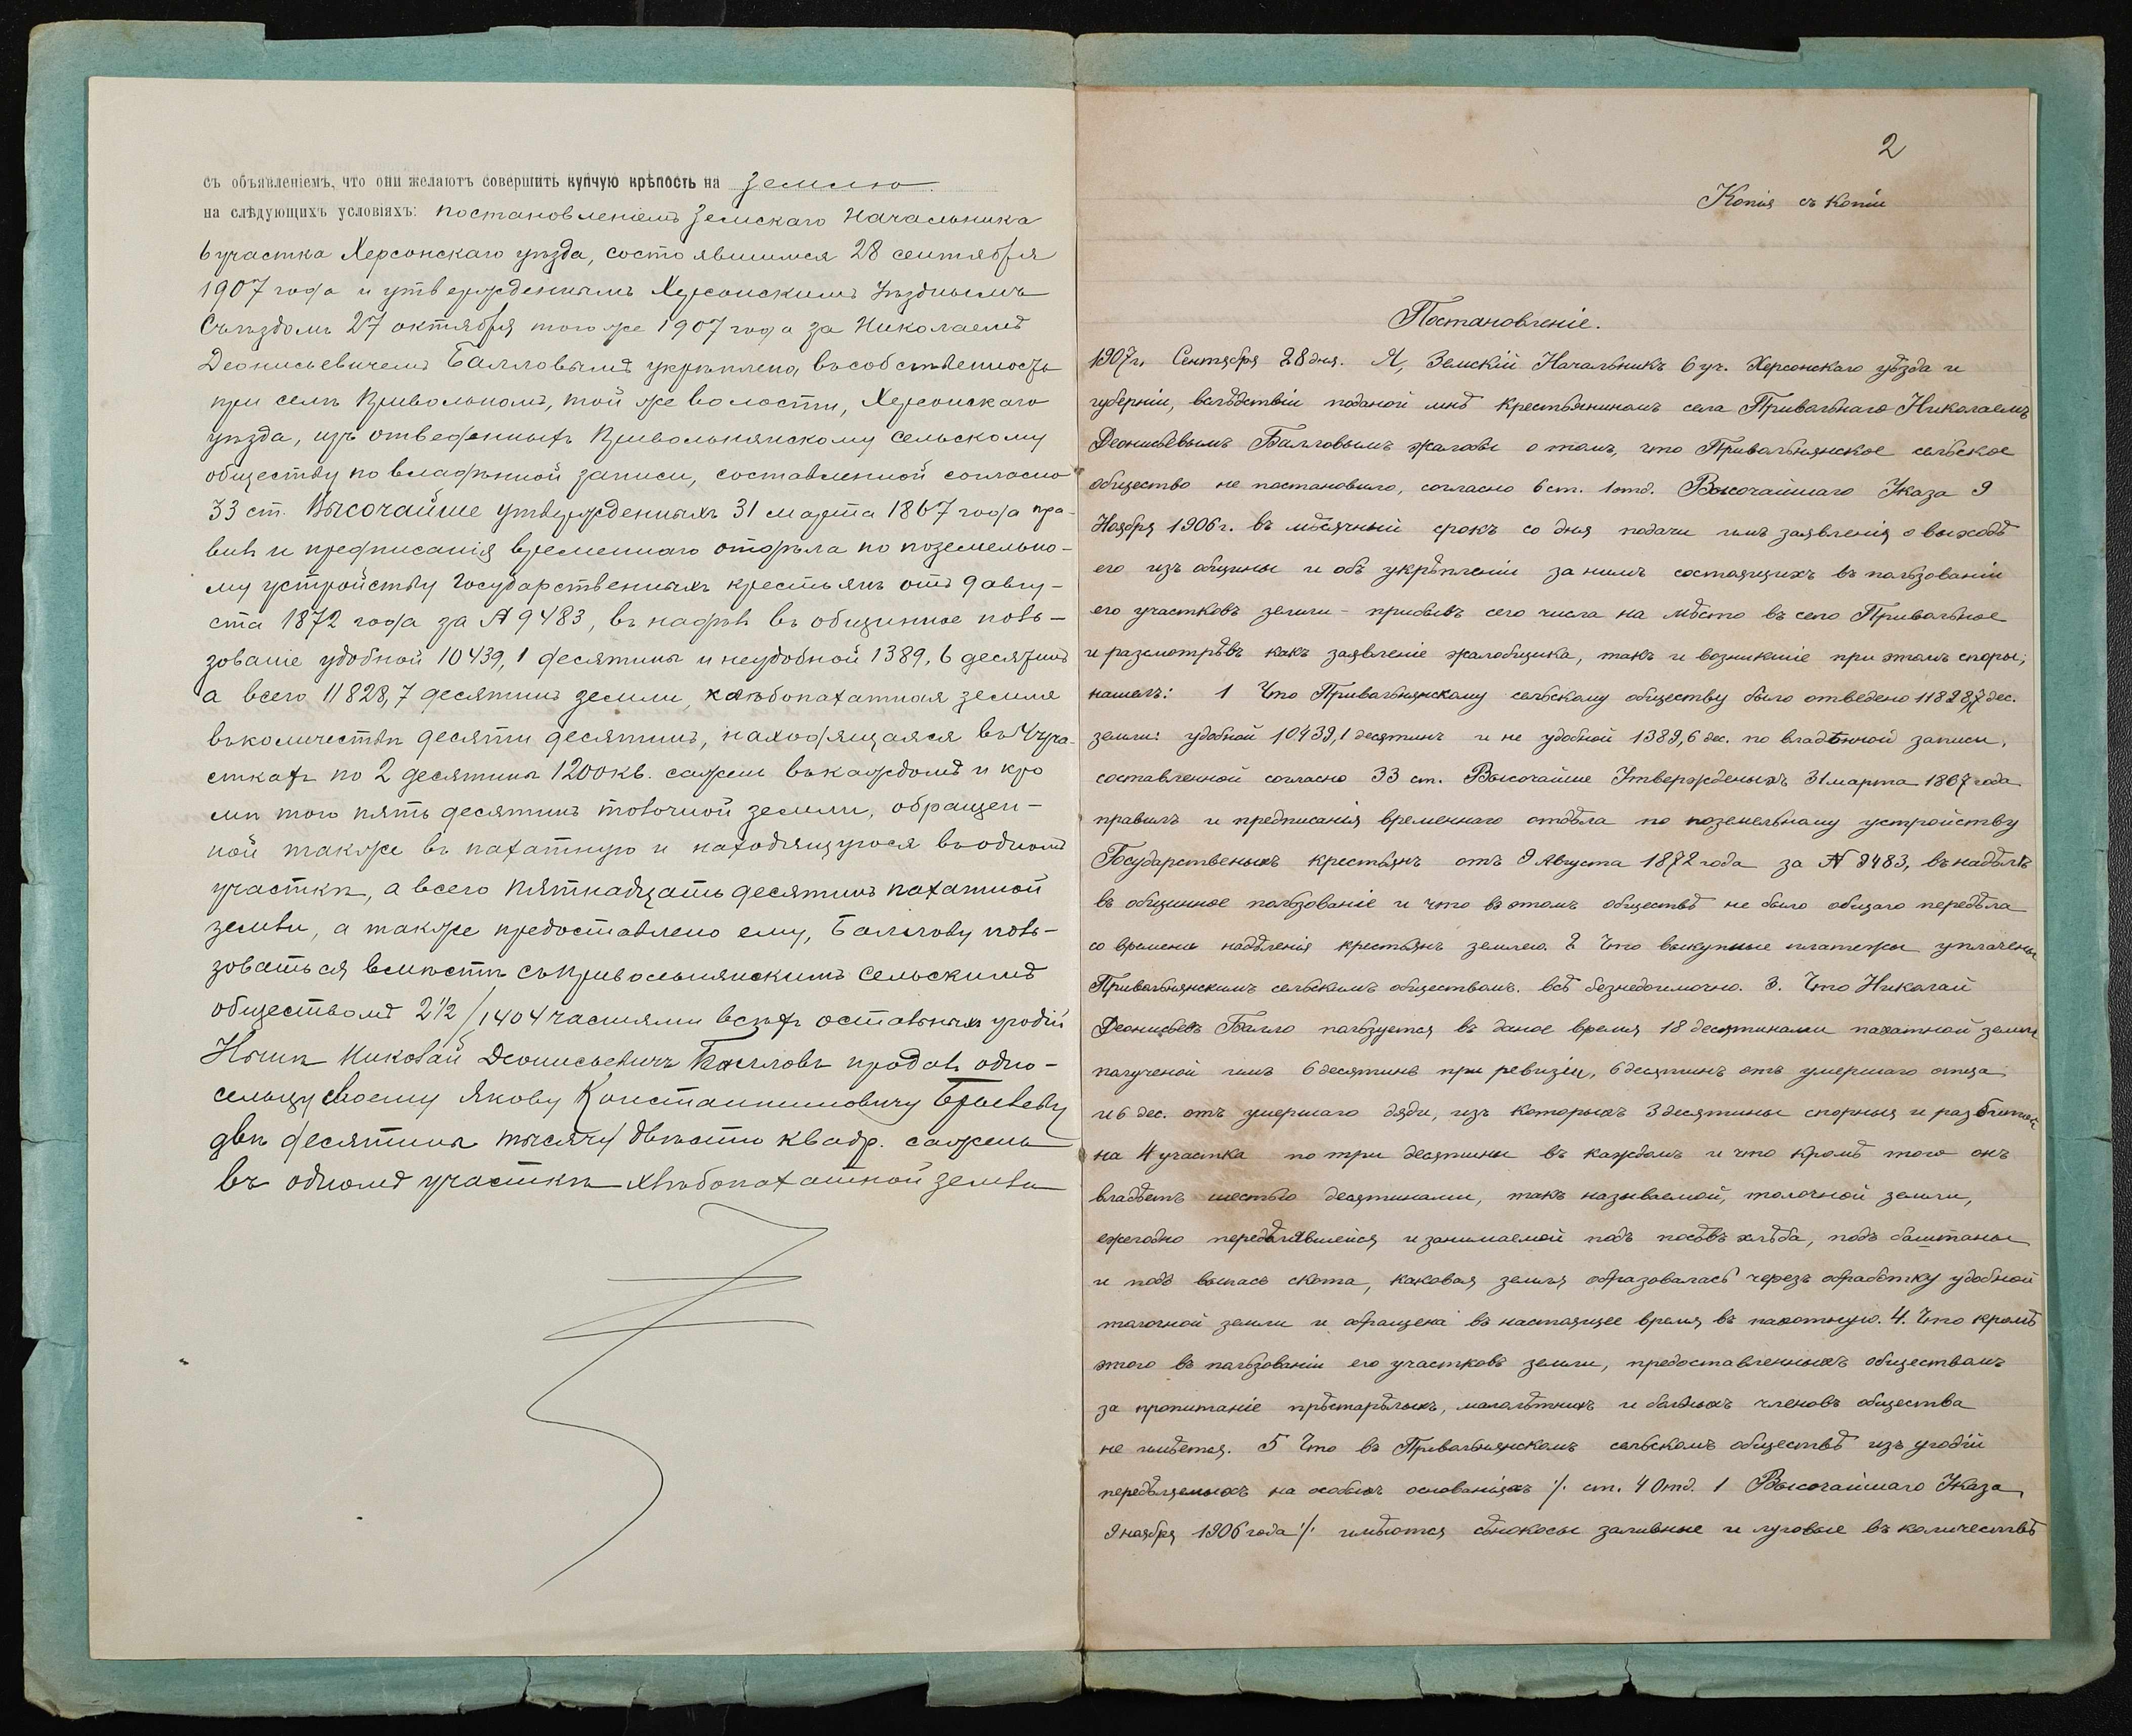 съ объявленіемъ, что они желаютъ совершить купчую крѣпость на землю
на слѣдующихъ условіяхъ: постановленіемъ Земскаго Начальника
6 участка Херсонскаго уѣзда, состоявшимся 28 сентября
1907 года и утвержденнымъ Херсонскимъ Уѣзднымъ
Съѣздомъ 27 октября того же 1907 года за Николаемъ
Деонисьевичемъ Балловымъ укрѣплена въ собственность
при селѣ Привольномъ, той же волости, Херсонскаго
уѣзда, изъ отведенныхъ Привольнянскому сельскому
обществу по владѣнной записи, составленной согласно
33 ст. Высочайше утвержденныхъ 31 марта 1867 года пра-
вилъ и предписанія временнаго отдѣла по поземельно-
му устройству Государственныхъ крестьянъ отъ 9 авгу-
ста 1872 года за № 9483, въ надѣлъ въ общинное поль-
зованіе удобной 10439,1 десятины и неудобной 1389,6 десятинъ
а всего 11828,7 десятинъ земли, хлѣбопахатная земля
въ количествѣ десяти десятинъ, находящаяся въ 4 уча-
сткахъ по 2 десятины 1200 кв. сажень въ каждомъ и кро
мѣ того пять десятинъ толочной земли, обращен-
ной также въ пахатную и находящуюся въ одномъ
участкѣ, а всего пятнадцать десятинъ пахатной
земли, а также предоставлено ему, Баллову поль-
зоваться вмѣстѣ съ Привольнянскимъ сельскимъ
обществомъ 2 1/2 /1404 частями всѣхъ остальныхъ угодій
Нынѣ Николай Деонисьевичъ Балловъ продалъ одно-
сельцу своему Якову Константиновичу
двѣ десятины тысячу двѣсти квадр. сажень
въ одномъ участкѣ хлѣбопахатной земли
2
Копія съ копіи
Постановленіе.
1907 г. Сентября 28 дня. Я, Земскій Начальникъ 6 уч. Херсонскаго уѣзда и
губерніи, вслѣдствіи поданой мнѣ крестьяниномъ села Привольнаго Николаемъ
Деонисьевымъ Балловымъ жалобы о томъ, что Привольнянское сельское
общество не постановило, согласно 6 ст. 1 отд. Высочайшаго Указа 9
Ноября 1906 г. въ мѣсячный срокъ со дня подачи имъ заявленія о выходѣ
его изъ общины и объ укрѣпленіи за нимъ состоящихъ въ пользованіи
его участковъ земли - прибывъ сего числа на мѣсто въ село Привольное
и разсмотрѣвъ какъ заявленіе жалобщика, такъ и возникшіе при этомъ споры,
нашелъ: 1 Что Привольнянскому сельскому обществу было отведено 11828,7 дес.
земли: удобной 10439,1 десятинъ и не удобной 1389,6 дес. по владѣнной записи,
составленной согласно 33 ст. Высочайше Утвержденыхъ 31 марта 1867 года
правилъ и предписанія временнаго отдѣла по поземельному устройству
Государственыхъ крестьянъ отъ 9 Августа 1872 года за № 9483, въ надѣлъ
въ общинное пользованіе и что въ этомъ обществѣ не было общаго передѣла
со времени надѣленія крестьянъ землею. 2 Что выкупные платежи уплачены
Привольнянскимъ сельскимъ обществомъ. всѣ безнедоимочно. 3. Что Николай
Деонисьевъ Балло пользуется въ даное время 18 десятинами пахатной земли
полученой имъ 6 десятинъ при ревизіи, 6 десятинъ отъ умершаго отца
и 6 дес. отъ умершаго дяди, изъ которыхъ 3 десятины спорныя и разбитой
на 4 участка по три десятины въ каждомъ и что кромѣ того онъ
владѣетъ шестью десятинами, такъ называемой, толочной земли,
ежегодно передѣлявшейся и занимаемой подъ посѣвъ хлѣба, подъ баштаны
и подъ выпасъ скота, каковая земля образовалась черезъ обработку удобной
толочной земли и обращена въ настоящее время въ пахотную. 4. Что кромѣ
этого въ пользованіи его участковъ земли, предоставленныхъ обществомъ
за пропитаніе прѣстарѣлыхъ, малолѣтнихъ и больныхъ членовъ общества
не имѣется. 5 Что въ Привольнянскомъ сельскомъ обществѣ изъ угодій
передѣляемыхъ на особыхъ основаніяхъ /. ст. 4 Отд. 1 Высочайшаго Указа
9 ноября 1906 года ./. имѣются сѣнокосы заливные и луговые въ количествѣ